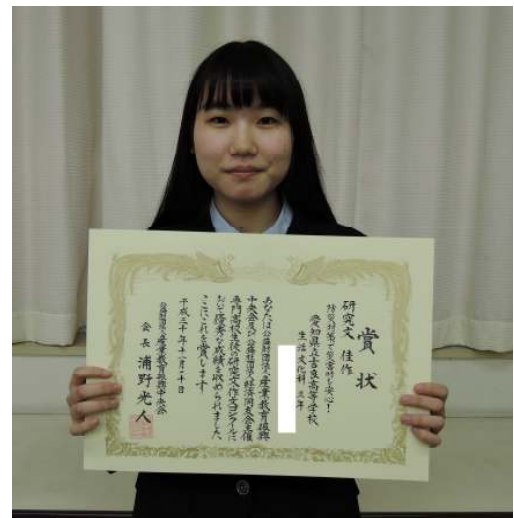 賞状
研究文 佳作
防災対策で災害時も安心！
愛知県立古良高等学校
生活文化科 三年
あなたは公益財団法人産業教育振興
中央会及び公益財団法人経済同友会主催
専門高校生徒の研究文・作文コンクールに
おいて優秀な成績を収められました
ここにこれを賞します
平成三十年十一月三十日
公益財団法人産業教育振興中央会
会長 浦野光人